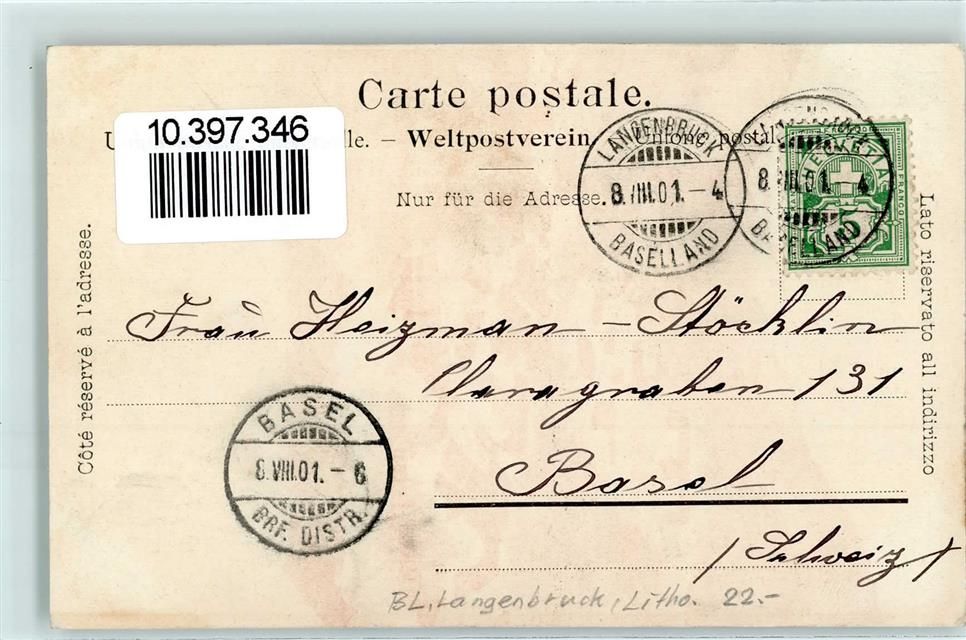 Carte postale.
10.397.346
U lle. – Weltpostverein. Unione postal
Nur für die Adresse.
LANGENBRUCK
8.VIII.01.–4
BASELLAND
8.VIII.01. 4
HELVETIA
FRANCO
5
Côté réservé à l'adresse.
Lato riservato all indirizzo
Frau Heizman – Stöcklin
Claragraben 131
Basel
(Schweiz)
BASEL
8.VIII.01.–6
BRF. DISTR.
BL, Langenbruck, Litho. 22.-